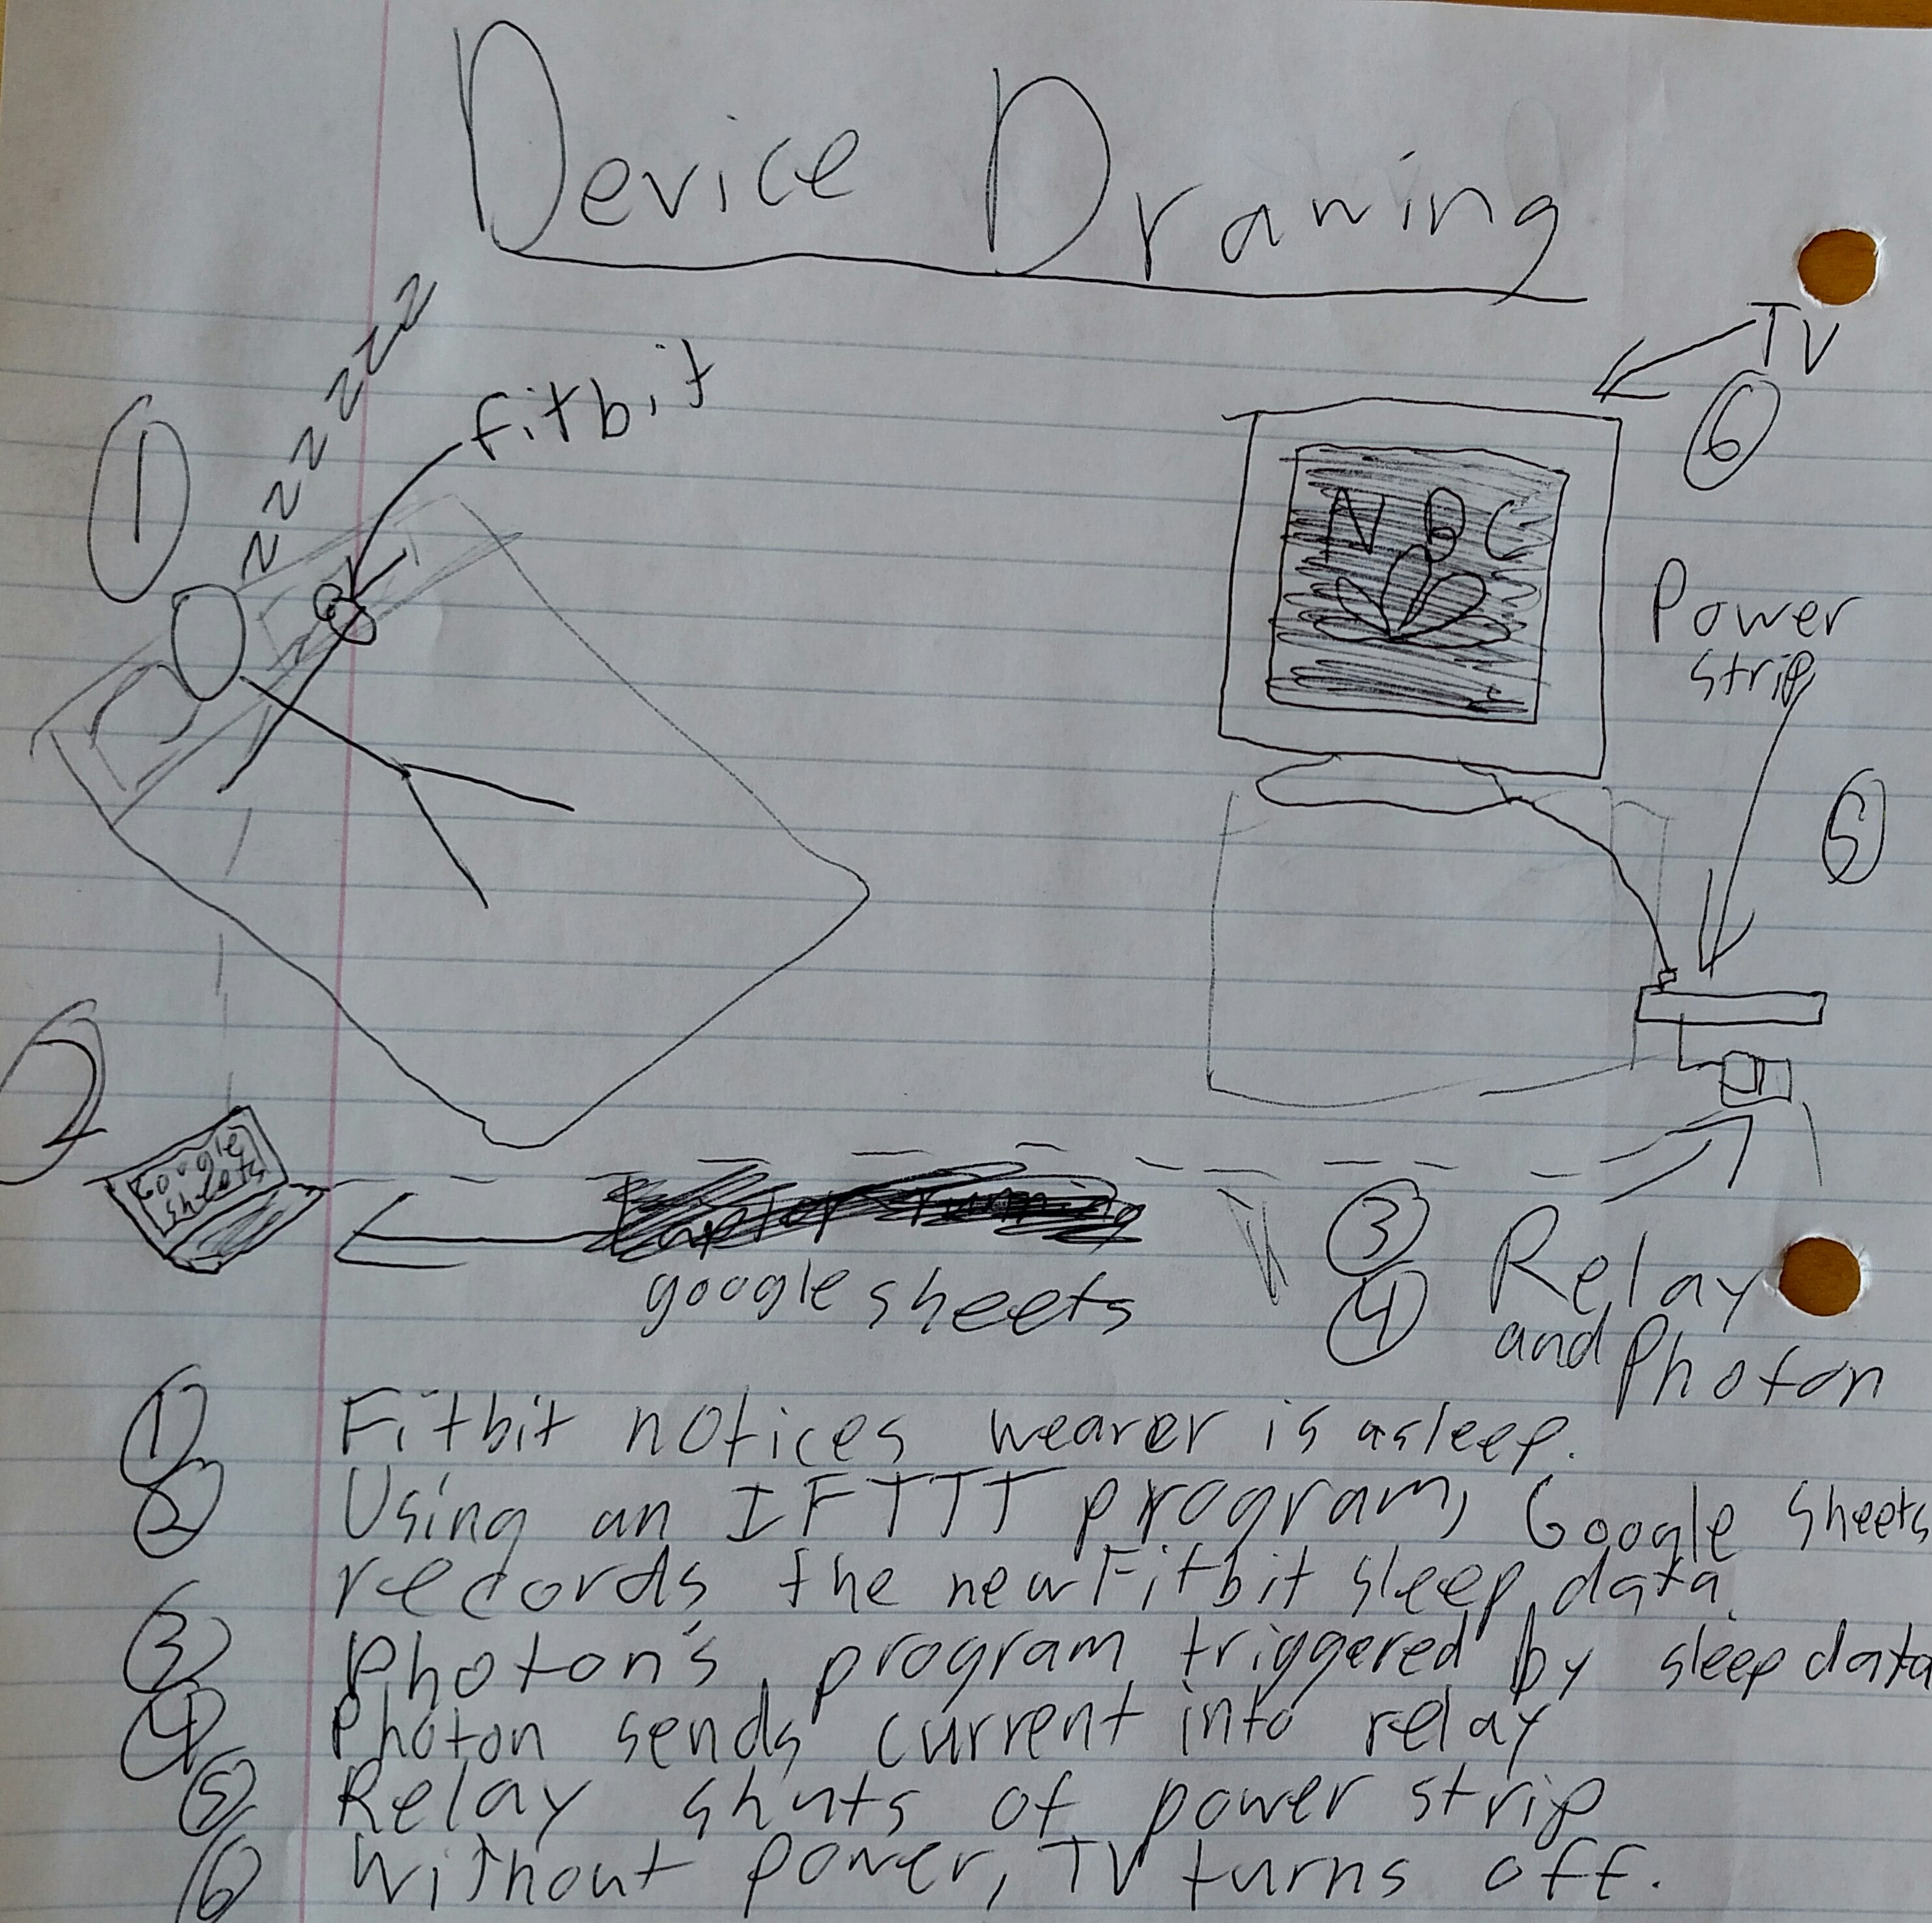 Device Drawing
zzzzzzz
fitbit
1
TV
6
NBC
Power
strip
5
2
Google
sheets
Laptop running
google sheets
3
4
Relay
and Photon
1 Fitbit notices wearer is asleep.
2 Using an IFTTT program, Google sheets
records the new Fitbit sleep data.
3 Photon's program triggered by sleep data
4 Photon sends current into relay
5 Relay shuts of power strip
6 Without power, TV turns off.